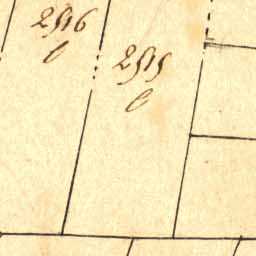 2516
C
2515
C